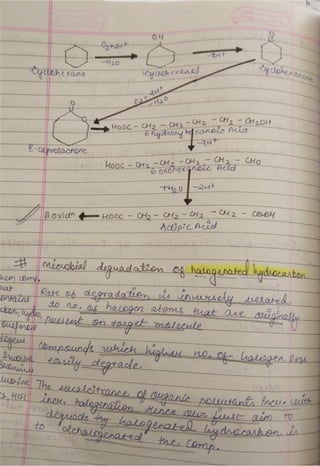 OH
O
O2+2H+
-H2O
-2H+
Cyclohexane
Cyclohexanol
Cyclohexanone
O2+2H+
-H2O
O
O
HOOC - CH2 - CH2 - CH2 - CH2 - CH2OH
6 hydroxyhexanoic Acid
E-caprolactone
-2H+
HOOC - CH2 - CH2 - CH2 - CH2 - CHO
6 oxohexanoic Acid
+H2O -2H+
β oxidn ← HOOC - CH2 - CH2 - CH2 - CH2 - COOH
Adipic Acid
# microbial degradation of halogenated hydrocarbon
Rate of degradation is inversely related
to no. of halogen atoms that are originally
present on target molecule
compounds which higher no. of halogen less
easily degrade.
The recalcitrance of organic pollutants incr. with
incr. halogenation Hence our first aim to
degrade by halogenated hydrocarbon is
to 'dehalogenated' the comp.